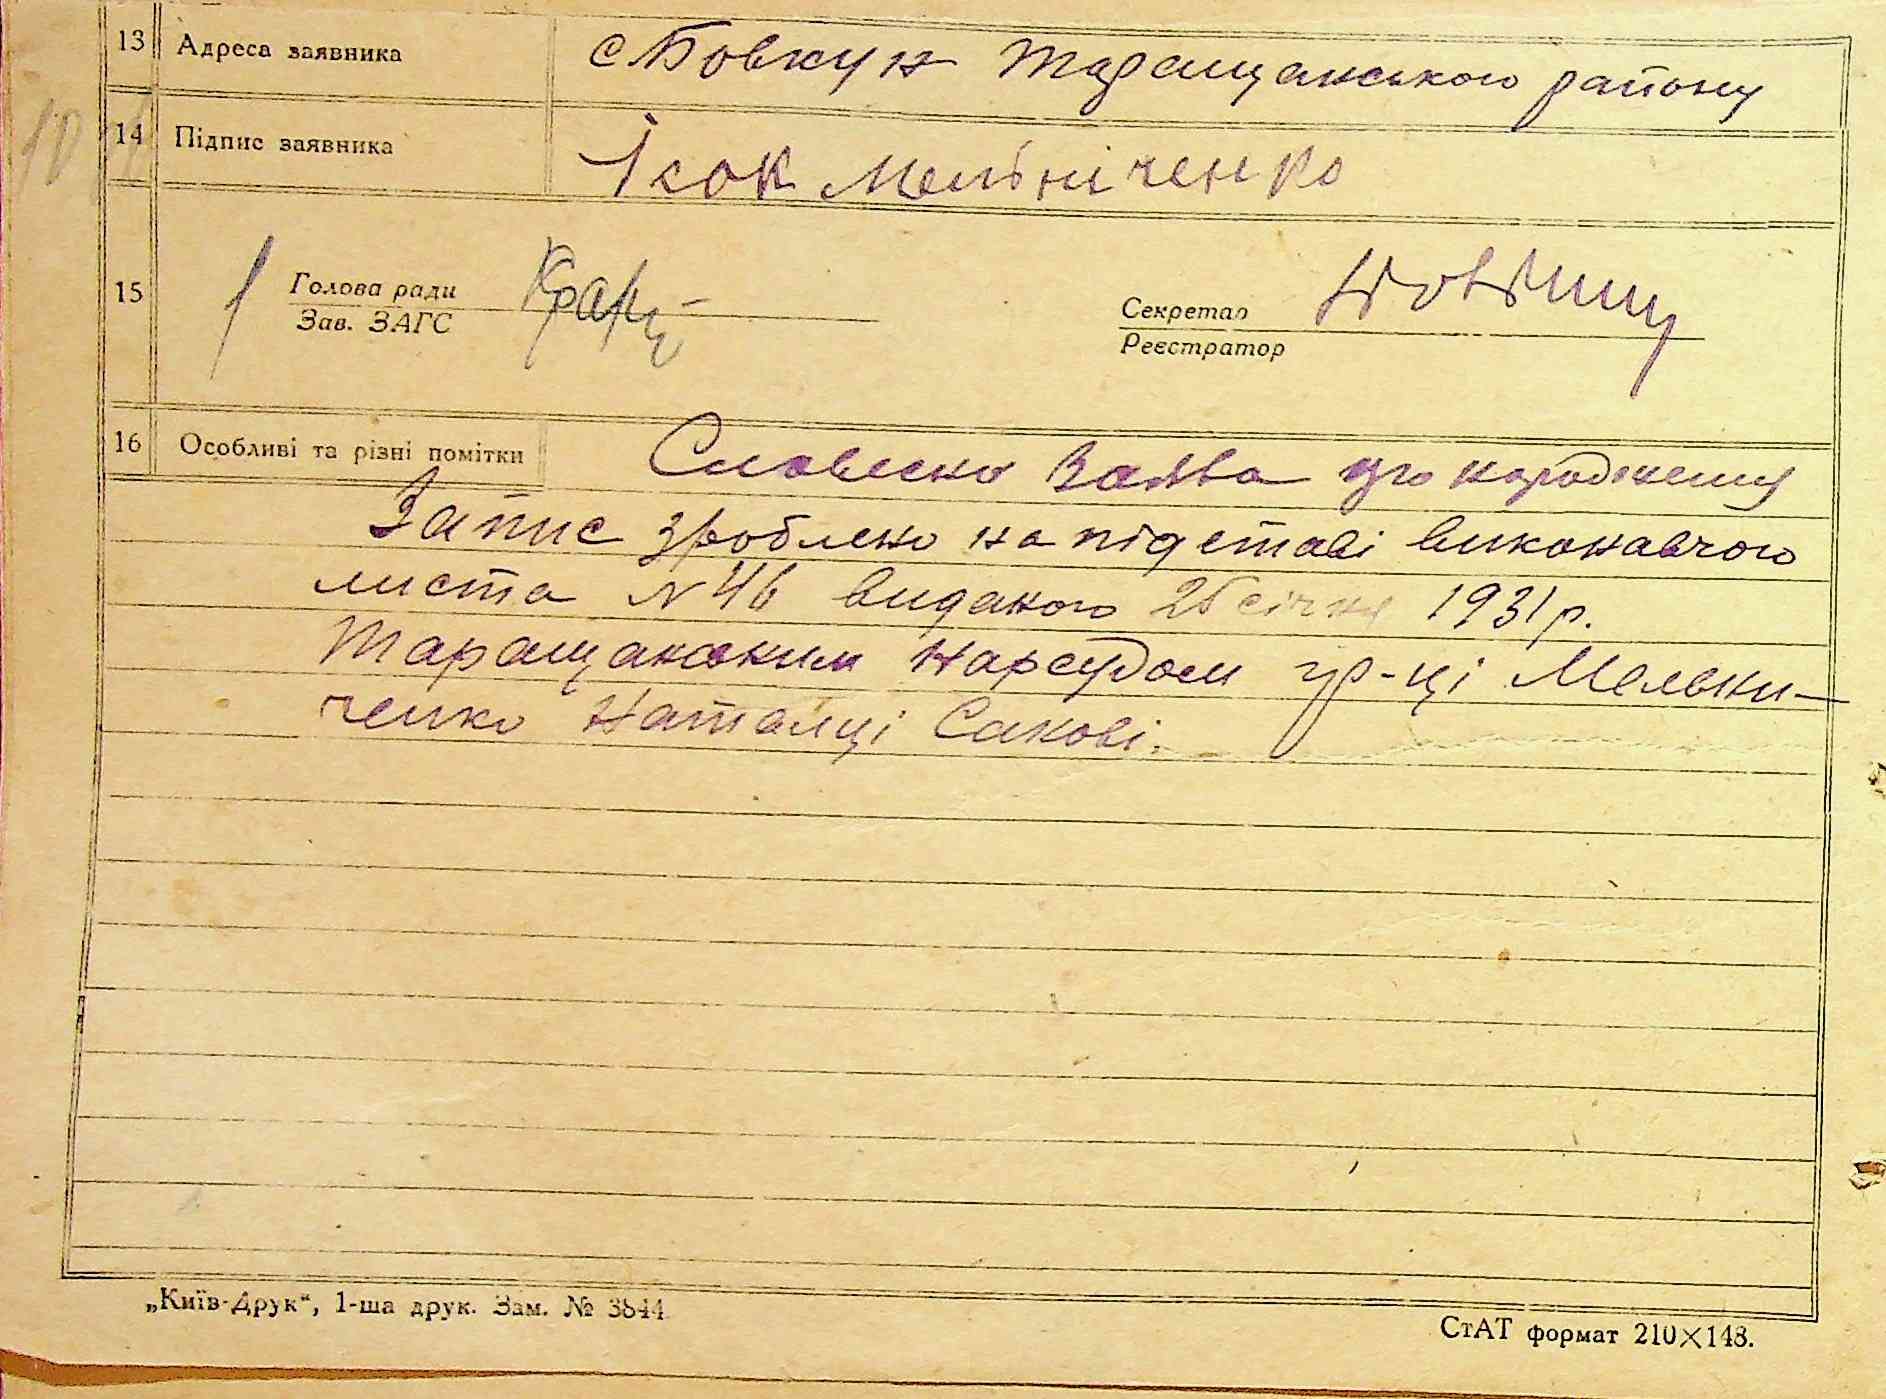 13 Адреса заявника с Бовкун Таращанського району
14 Підпис заявника Ісак Мельніченко
15 Голова ради
Зав. ЗАГС
Секретар
Реєстратор
16 Особливі та різні помітки Словесна Заява про народження
Запис зроблено на підставі виконавчого
листа N 46 виданого 25 січня 1931 р.
Таращанським Нарсудом гр-ці Мельни-
ченко Наталці Саковi.
„Київ-Друк“, 1-ша друк. Зам. № 3844
СтАТ формат 210×148.